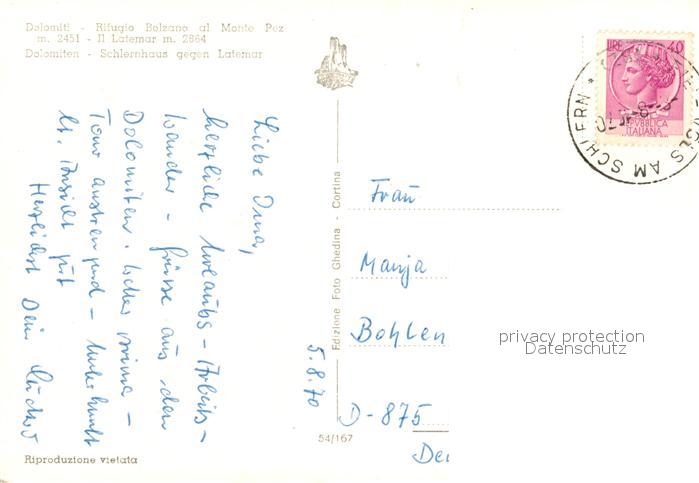 Dolomiti - Rifugio Bolzano al Monte Pez
m. 2451 - Il Latemar m. 2864
Dolomiten - Schlernhaus gegen Latemar
LIRE 40
REPUBBLICA
ITALIANA
AM SCHLERN *
Liebe Oma,
herzliche Urlaubs - Arbeits -
Wander - Grüße aus den
Dolomiten. Wetter prima -
Tour anstrengend - Unterkunft
lt. Ansicht gut
Herzlichst Dein
5.8.70
Edizione Foto Ghedina - Cortina
Frau
Manja
Bohlen
D-875
54/167
privacy protection
Datenschutz
Riproduzione vietata